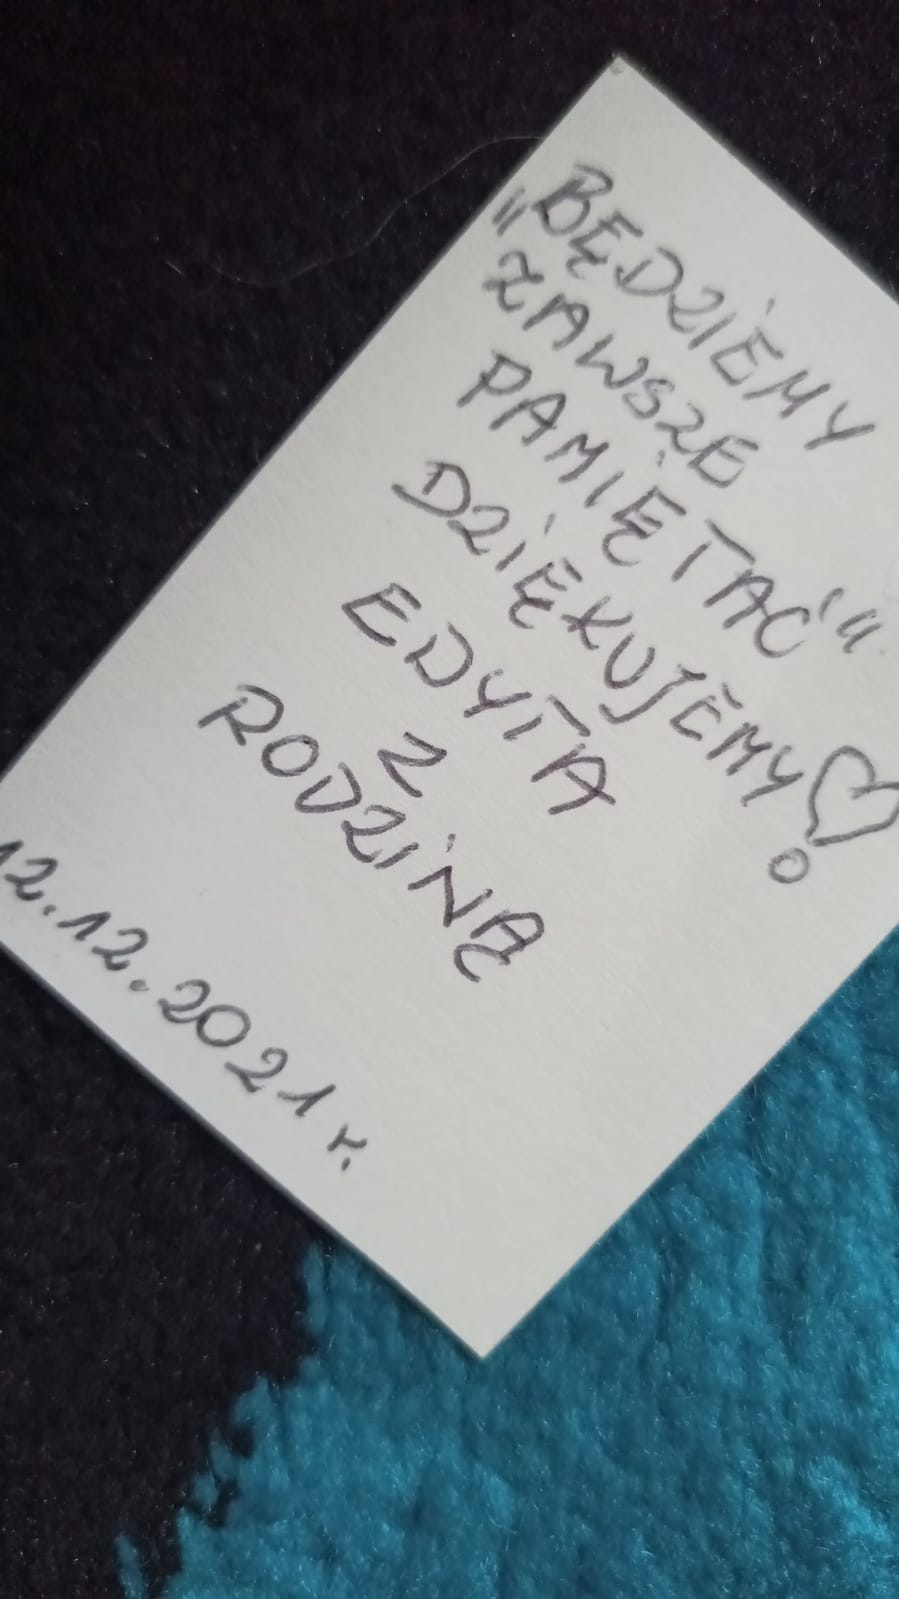 "BĘDZIEMY
ZAWSZE
PAMIĘTAĆ"
DZIĘKUJEMY
EDYTA
Z
RODZINĄ
12.12.2021 r.